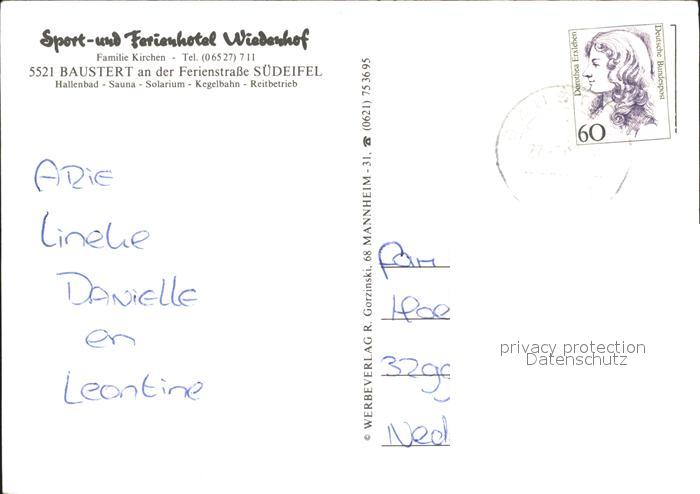 Sport-und Ferienhotel Wiedenhof
Familie Kirchen - Tel. (06527) 711
5521 BAUSTERT an der Ferienstraße SÜDEIFEL
Hallenbad - Sauna - Solarium - Kegelbahn - Reitbetrieb
ARIE
Lineke
DANIELLE
en
Leontine
© WERBEVERLAG R. Gorzinski, 68 MANNHEIM - 31, ☎ (0621) 75 36 95
Dorothea Erxleben
Deutsche Bundespost
60
Fam
Hoe
Ned
privacy protection
Datenschutz